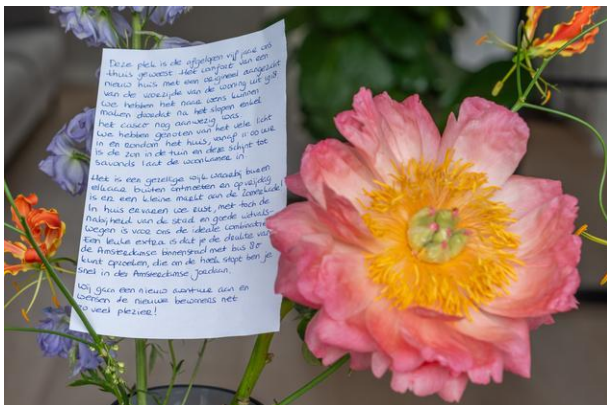 Deze plek is de afgelopen vijf jaar ons
thuis geweest. Het comfort van een
nieuw huis met een origineel aangezicht
van de voorzijde van de woning uit 1928
We hebben het naar wens kunnen
maken doordat na het slopen enkel
het casco nog aanwezig was.
We hebben genoten van het vele licht
in en rondom het huis, vanaf 11:00 uur
is de zon in de tuin en deze schijnt tot
savonds laat de woonkamer in
Het is een gezellige wijk waarbij buren
elkaar buiten ontmoeten en op vrijdag
is er een kleine markt aan de
In huis ervaren we rust, met toch de
nabijheid van de stad en goede uitvals-
wegen is voor ons de ideale combinatie
Een leuke extra is dat je de drukte van
de Amsterdamse binnenstad met bus
kunt opzoeken, die om de hoek stopt ben je
snel in de Amsterdamse Jordaan.
Wij gaan een nieuw avontuur aan en
wensen de nieuwe bewoners net
zo veel plezier!